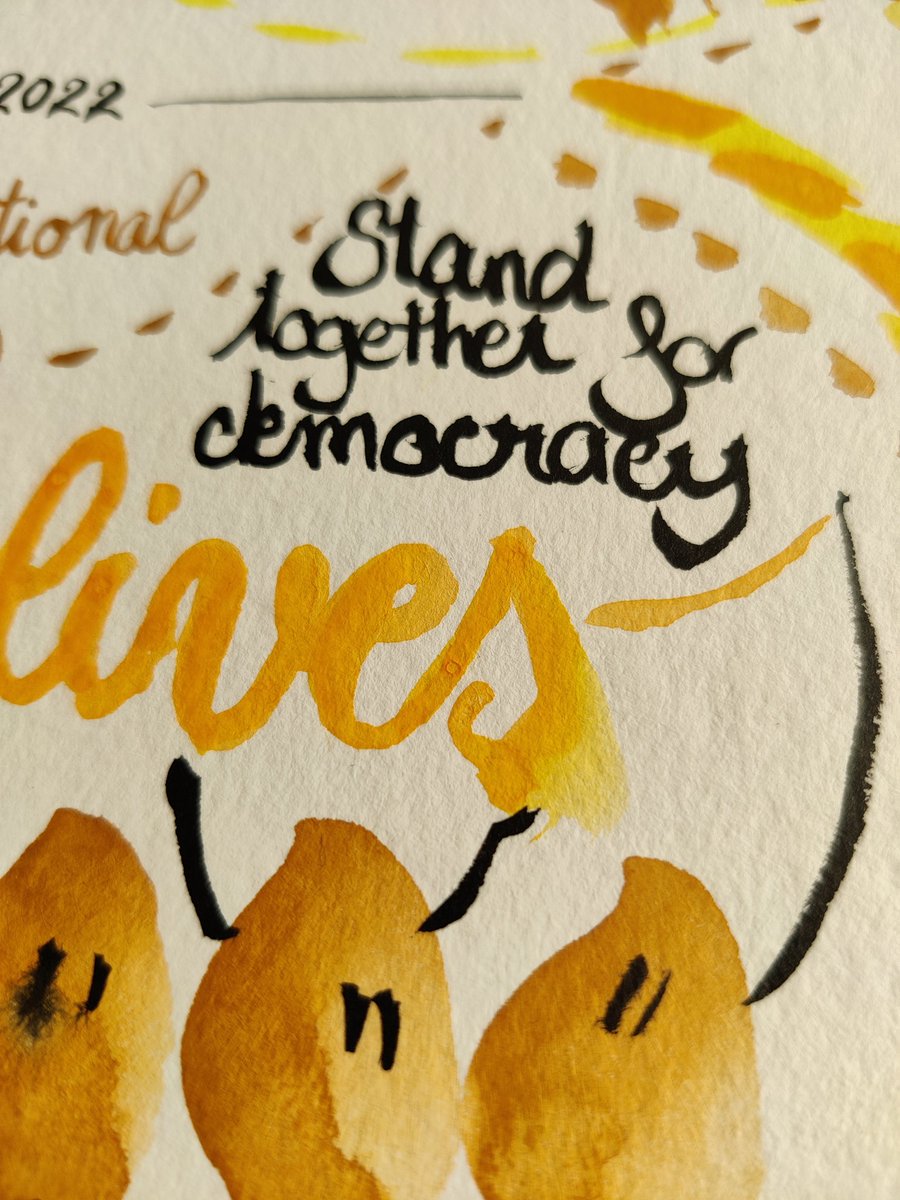 2022
tional
Stand
together for
democracy
lives